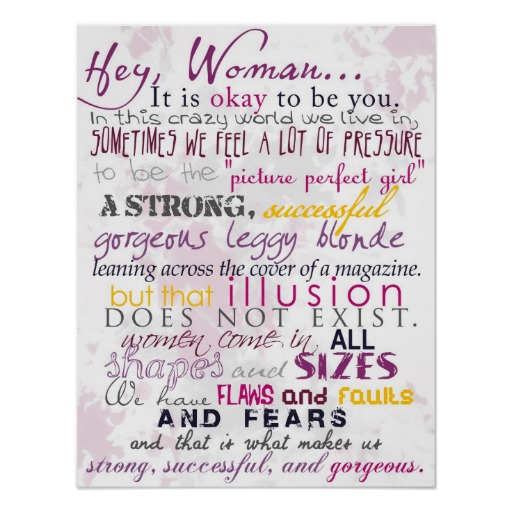 Hey, Woman...
It is okay to be you.
In this crazy world we live in,
SOMETIMES WE FEEL A LOT OF PRESSURE
to be the "picture perfect girl"
A STRONG, successful
gorgeous leggy blonde
leaning across the cover of a magazine.
but that illusion
DOES NOT EXIST.
women come in ALL
shapes and SIZES
We have FLAWS and faults
AND FEARS
and that is what makes us
strong, successful, and gorgeous.